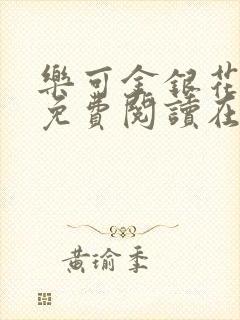 樂可金銀花
免費閱讀在
黃瑜季